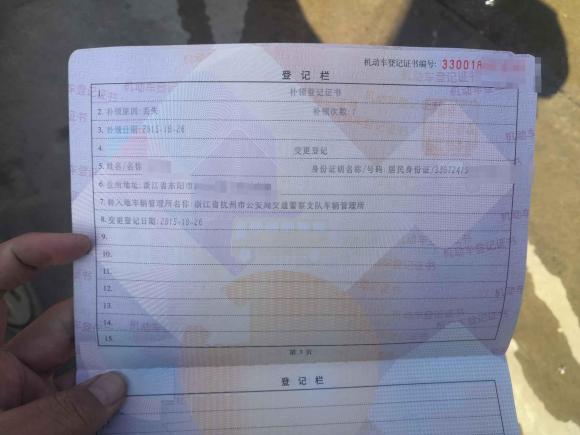 机动车登记证书编号: 330018
登记栏
1. 补领登记证书
2. 补领原因:丢失 补领次数:1
3. 补领日期:2015-10-26
4. 变更登记
5. 姓名/名称 身份证明名称/号码:居民身份证/3307241
6. 住所地址:浙江省东阳市
7. 转入地车辆管理所名称:浙江省杭州市公安局交通警察支队车辆管理所
8. 变更登记日期:2015-10-26
9.
10.
11.
12.
13.
14.
15.
第 3 页
登记栏
1.
2.